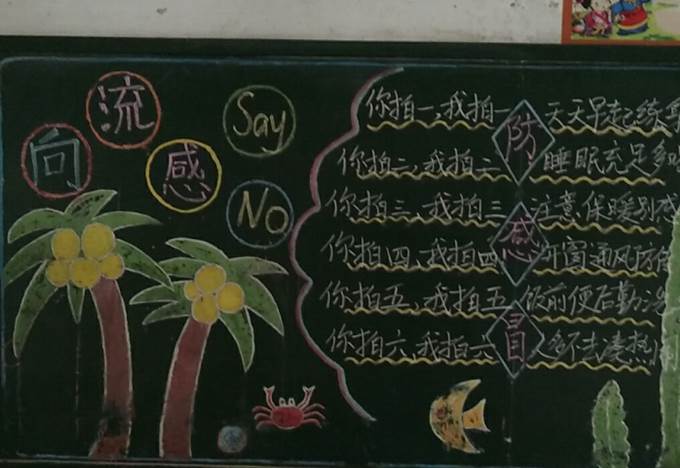 向流感
Say
No
防感冒
你拍一,我拍一 天天早起练
你拍二,我拍二 睡眠充足多
你拍三,我拍三 注意保暖别感
你拍四、我拍四 开窗通风防
你拍五、我拍五 饭前便后勤洗
你拍六,我拍六 人多不去凑热